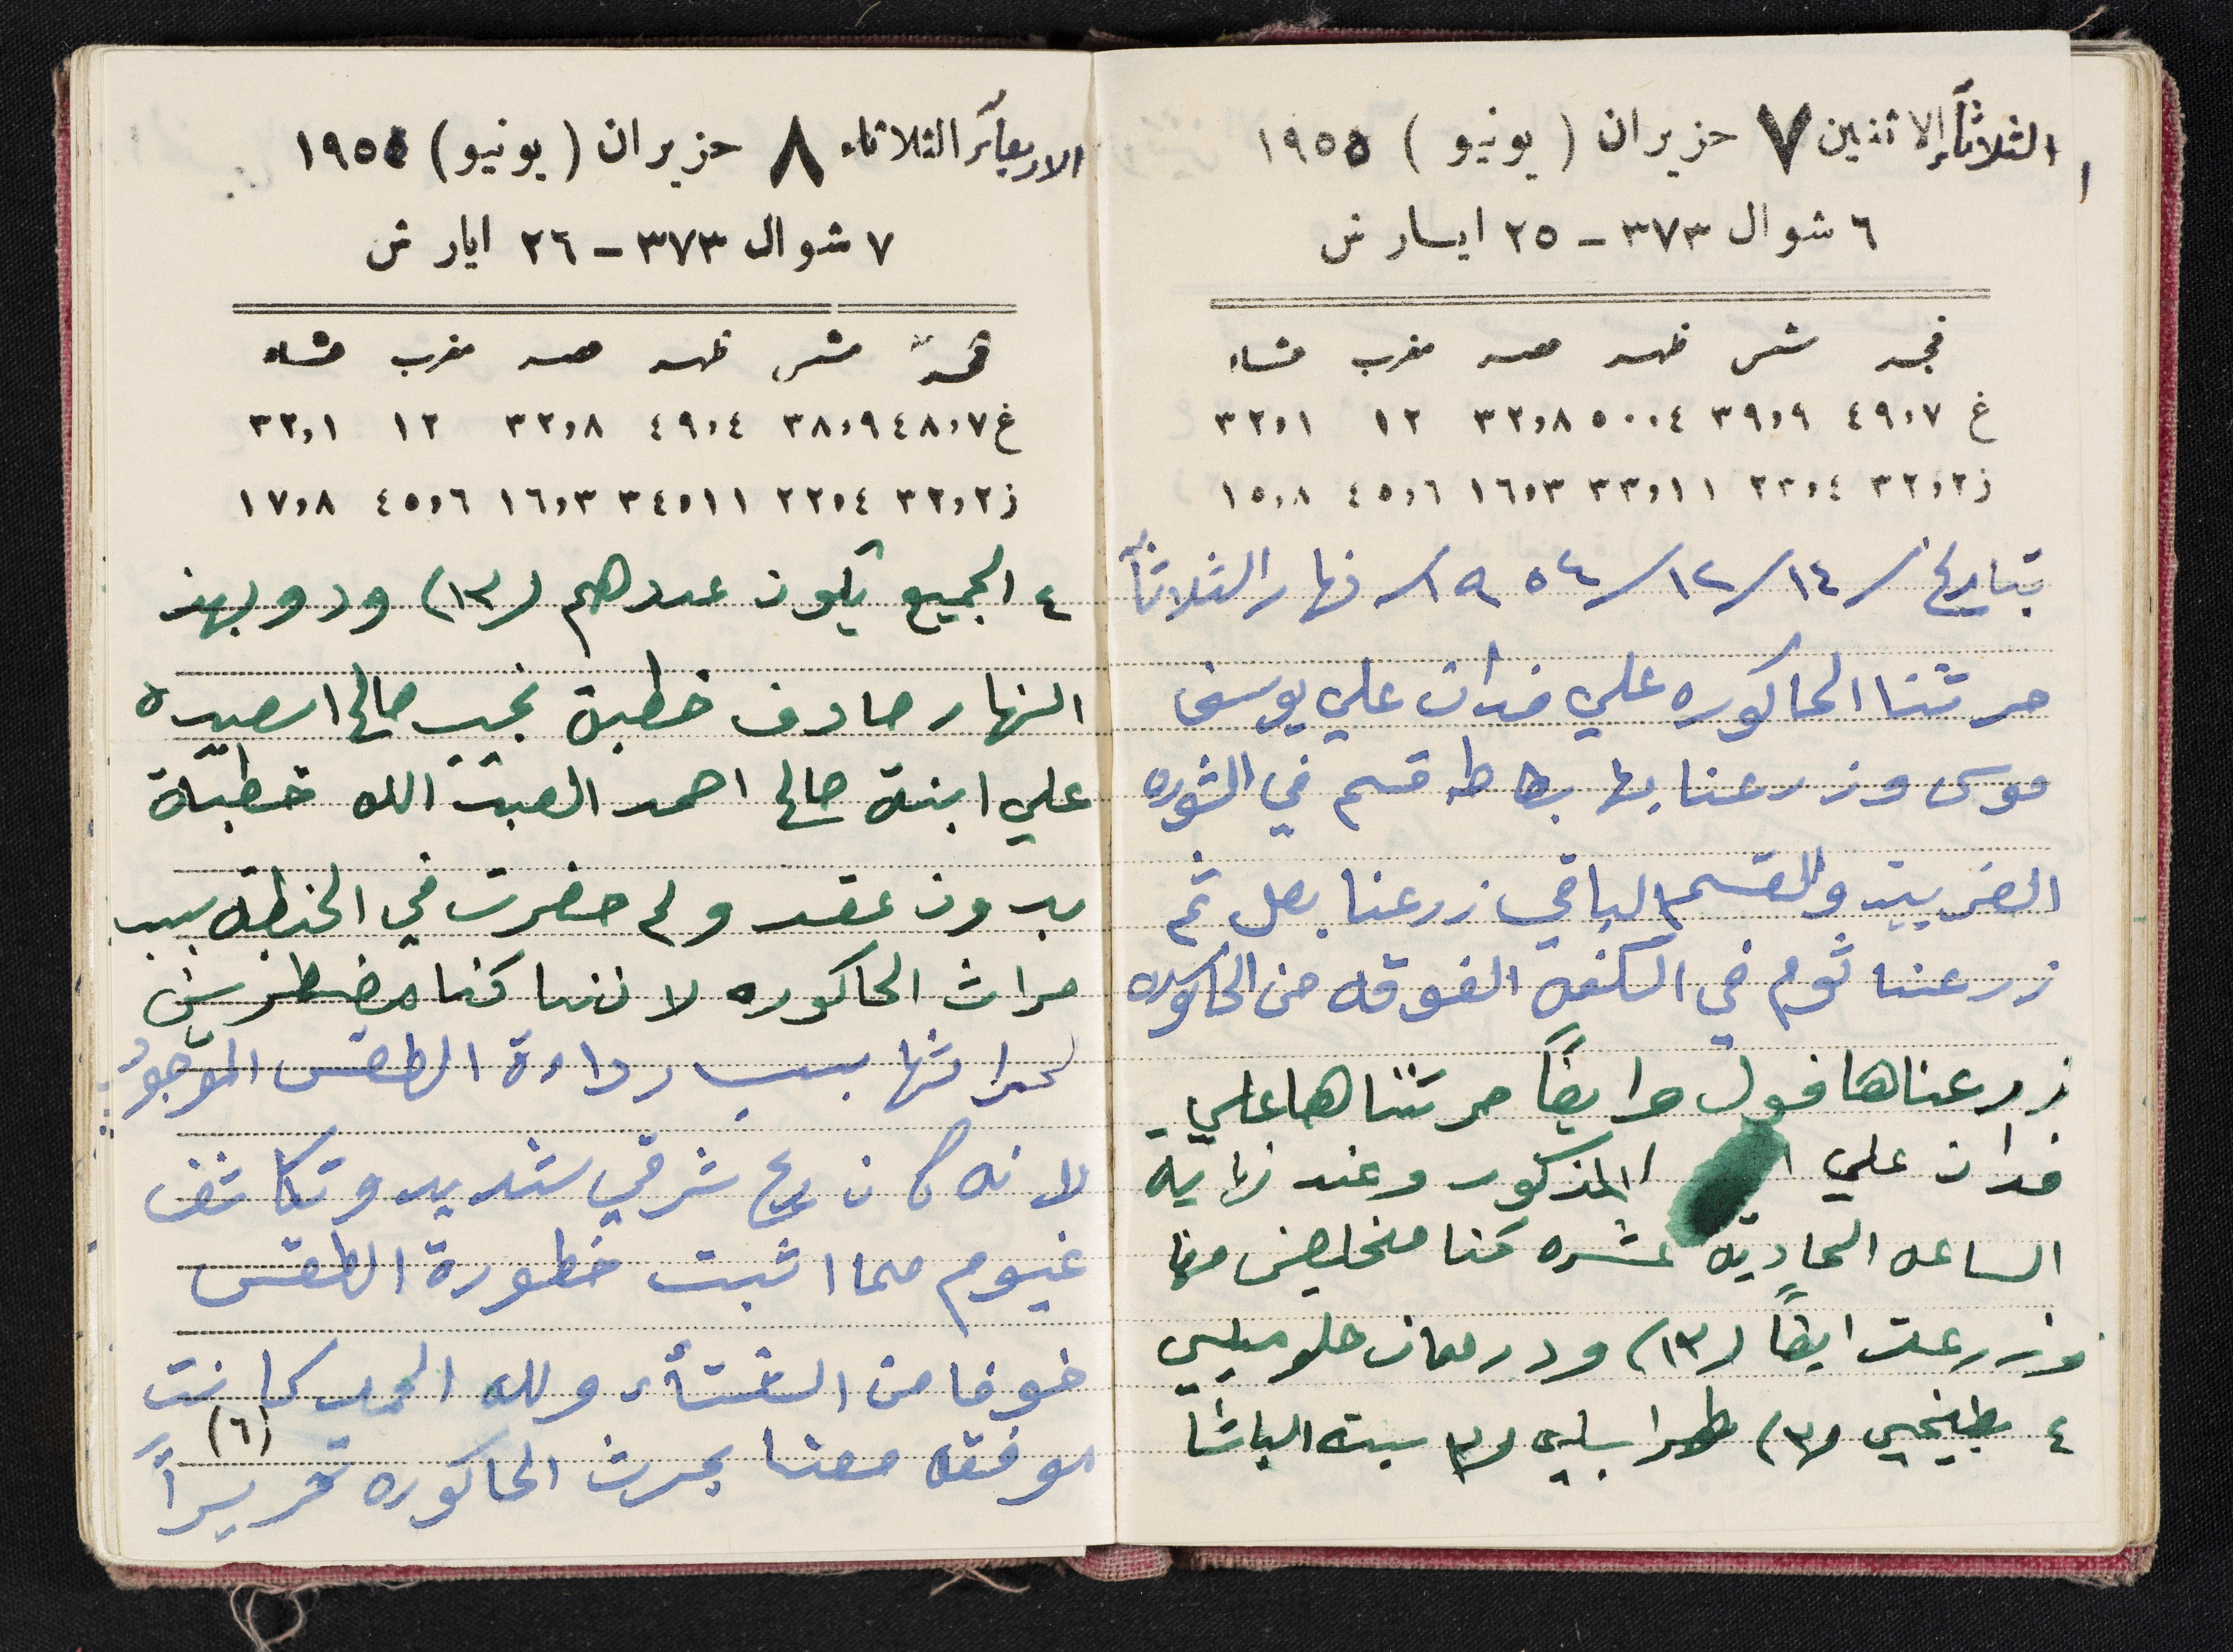 الثلاثاء الاثنين ٧ حزيران ( يونيو ) ١٩٥٥
٦ شوال ٣٧٣ - ٢٥ ايسار ش
فجر شمس ظهر عصر مغرب عشاء
غ ٤٩،٧ ٣٩،٩ ٥٠،٤ ٣٢،٨ ١٢ ٣٢،١
ز ٣٢،٢ ٢٣،٤ ٣٣،١١ ١٦،٣ ٤٥،٦ ١٥،٨
بتاريخ / ١٤ / ١٢ / ١٩٥٤ / نهار الثلاثأ
حرثنا الحاكوره علي فدان علي يوسف
موسى وزرعنا بها بطاطه قسم في الشوره
الغربيه والقسم الباقي زرعنا بصل ثم
زرعنا ثوم في الكنفه الفوقه من الحاكوره
زرعناها فول وايضاً حرثناها علي
فدان علي المذكور وعند نهاية
الساعه الحادية عشره كنا مخلصين منها
وزرعت ايضاً (١٣) ود رمان حلو مليسي
٤ بطيخي (٣) طرابلسي (٣ سبته الباشا
الاربعاء الثلاثاء ٨ حزيران ( يونيو ) ١٩٥٥
٧ شوال ٣٧٣ - ٢٦ ايار ش
فجر شمس ظهر عصر مغرب عشاء
غ ٤٨،٧ ٣٨،٩ ٤٩،٤ ٣٢،٨ ١٢ ٣٢،١
ز ٣٢،٢ ٢٢،٤ ٣٤،١١ ١٦،٣ ٤٥،٦ ١٧،٨
٤ الجميع يكون عددهم (١٣) ود وبهذ
النهار صادف خطبة نجيب صالح اسعيده
علي ابنة صالح احمد العبد الله خطبة
بدون عقد ولم حضرت في الخطبه بسبب
حراث الحاكوره لاننا كنا مضطرين
لحراثتها بسبب رداءة الطقس الموجود
لانه كان ريح شرقي شديد وتكاثف
غيوم مما اثبت خطورة الطقس
خوفا من الشتأ ولله الحمد كانت
موفقه معنا بحرث الحاكوره تحريراً
(٦)